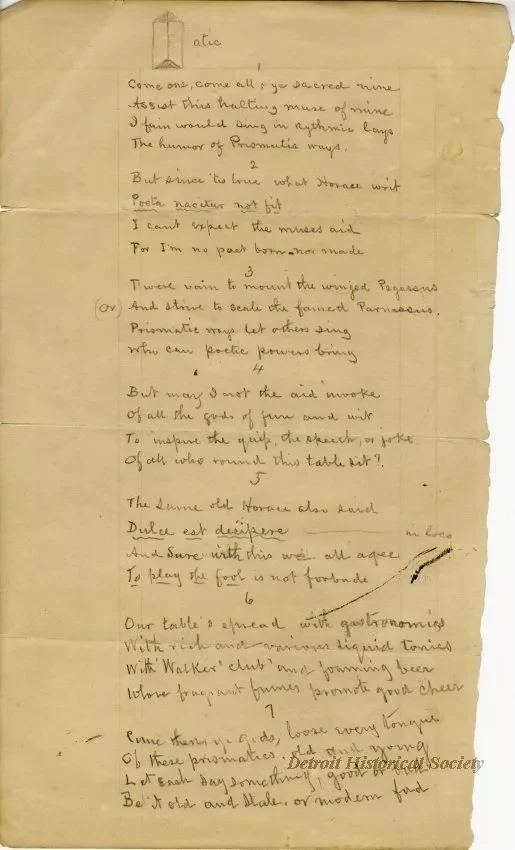 atic
1
Come one, come all, ye sacred nine
Assist this halting muse of mine
I fain would sing in rythmic lays
The humor of Prismatic ways.
2
But since 'tis true what Horace writ
Poeta nacitur not fit
I can't expect the muses aid
For I'm no poet born nor made
3
T'were vain to mount the winged Pegassus
(or) And strive to scale the famed Parnassus.
Prismatic ways let others sing
Who can poetic powers bring
4
But may I not the aid invoke
Of all the gods of fun and wit
To inspire the quip, the speech, or joke
Of all who round this table sit?
5
The same old Horace also said
Dulce est decipere in loco
And sure with this we all agree
To play the fool is not forbade
6
Our table's spread with gastronomics
With rich and various liquid tonics
With 'Walker' club' and foaming beer
Whose fragrant fumes promote good cheer
7
Come then, ye gods, loose every tongue
Of these prismatics old and young
Let each say something, good or
Be it old and stale, or modern fad
Detroit Historical Society